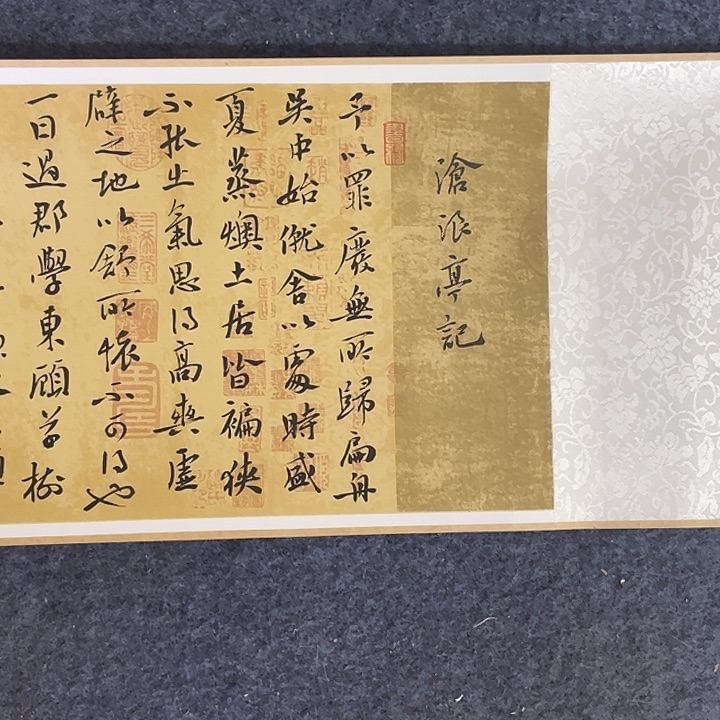 滄浪亭記
予以罪廢無所歸扁舟
吳中始僦舍以處時盛
夏蒸燠土居皆褊狹
不能出氣思得高爽虛
辟之地以舒所懷不可得也
一日過郡學東顧草樹